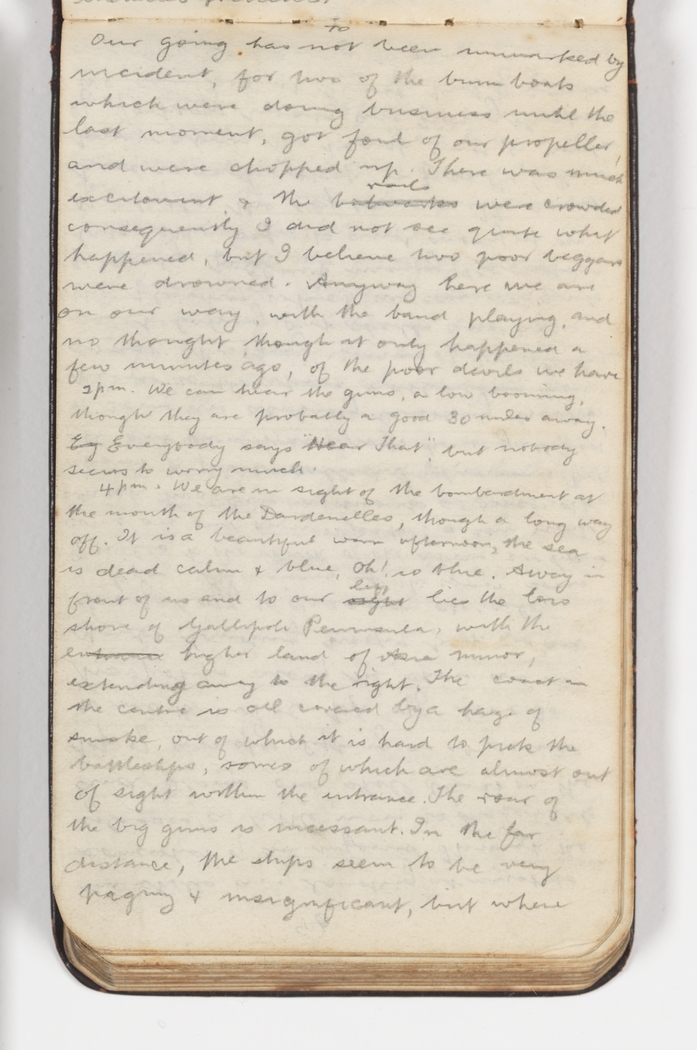 10
Our going has not been unmarked by
incident, for two of the bum boats
which were doing business until the
last moment, got foul of our propeller,
and were chopped up. There was much
rails
excitement, & the bulwarks were crowded
consequently I did not see quite what
happened, but I believe two poor beggars
were drowned. Anyway here we are
on our way, with the band playing, and
no thought, though it only happened a
few minutes ago, of the poor devils we have
2pm. We can hear the guns, a low booming,
though they are probably a good 30 miles away.
Eg Everybody says "Hear That", but nobody
seems to worry much.
4pm. We are in sight of the bombardment at
the mouth of the Dardenelles, though a long way
off. It is a beautiful warm afternoon, the sea
is dead calm & blue, Oh! so blue. Away in
left
front of us and to our right lies the low
shore of Gallipoli Peninsula, with the
entrance higher land of Asia minor,
extending away to the right. The coast in
the centre is all covered by a haze of
smoke, out of which it is hard to pick the
battleships, some of which are almost out
of sight within the entrance. The roar of
the big guns is incessant. In the far
distance, the ships seem to be very
& insignificant, but where